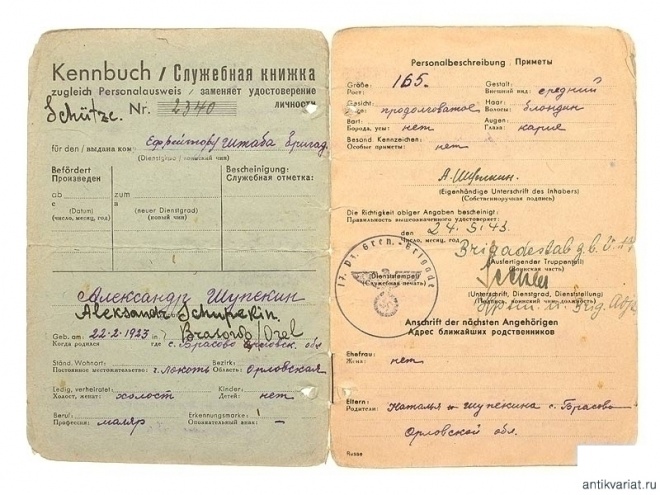 Kennbuch / Служебная книжка
zugleich Personalausweis / заменяет удостоверение
личности
Schütze. Nr. 2340
Ефрейтору штаба бригад
für den / выдана ком
(Dienstgrad / воинский чин)
Befördert
Произведен
Bescheinigung:
Служебная отметка:
ab
с
zum
в
(Datum)
(число, месяц, год)
(neuer Dienstgrad)
(новый чин)
Александр Шупекин
Aleksandr Schupekin
Geb. am 22-2-1923 Brasowo/Orel
Когда родился где с. Брасово Орловск. обл
Ständ. Wohnort: Bezirk:
Постоянное местожительство: г. Локоть Область: Орловская
Ledig, verheiratet: Kinder:
Холост, женат: холост Детей: нет
Beruf: Erkennungsmarke:
Профессия: маляр Опознавательный знак: –
Personalbeschreibung / Приметы
Größe: 165. Gestalt:
Рост: Внешний вид: средний
Gesicht: Haar:
продолговатое Волосы: блондин
Bart: Augen:
Борода, усы: нет Глаза: карие
Besond. Kennzeichen:
Особые приметы: нет
А. Шупекин.
(Eigenhändige Unterschrift des Inhabers)
(Собственноручная подпись)
Die Richtigkeit obiger Angaben bescheinigt:
Правильность вышеозначенного удостоверяет:
24.5.43.
(число, месяц, год)
Brigadestab
(Ausfertigender Truppenteil)
(Воинская часть)
Gren.-Brigade
(Dienststempel)
(Служебная печать)
(Unterschrift, Dienstgrad, Dienststellung)
(Подпись, воинский чин и должность)
Anschrift der nächsten Angehörigen
Адрес ближайших родственников
Ehefrau:
Жена: нет
Eltern:
Родители: Наталья Шупекина с. Брасово
Орловской обл.
Russe
antikvariat.ru